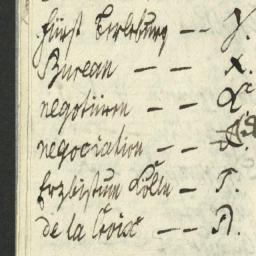 Fürst Berleburg -- Y.
Bureau -- x.
negotiiren --
negociation --
Erzbistum Cölln - T.
de la Croix --